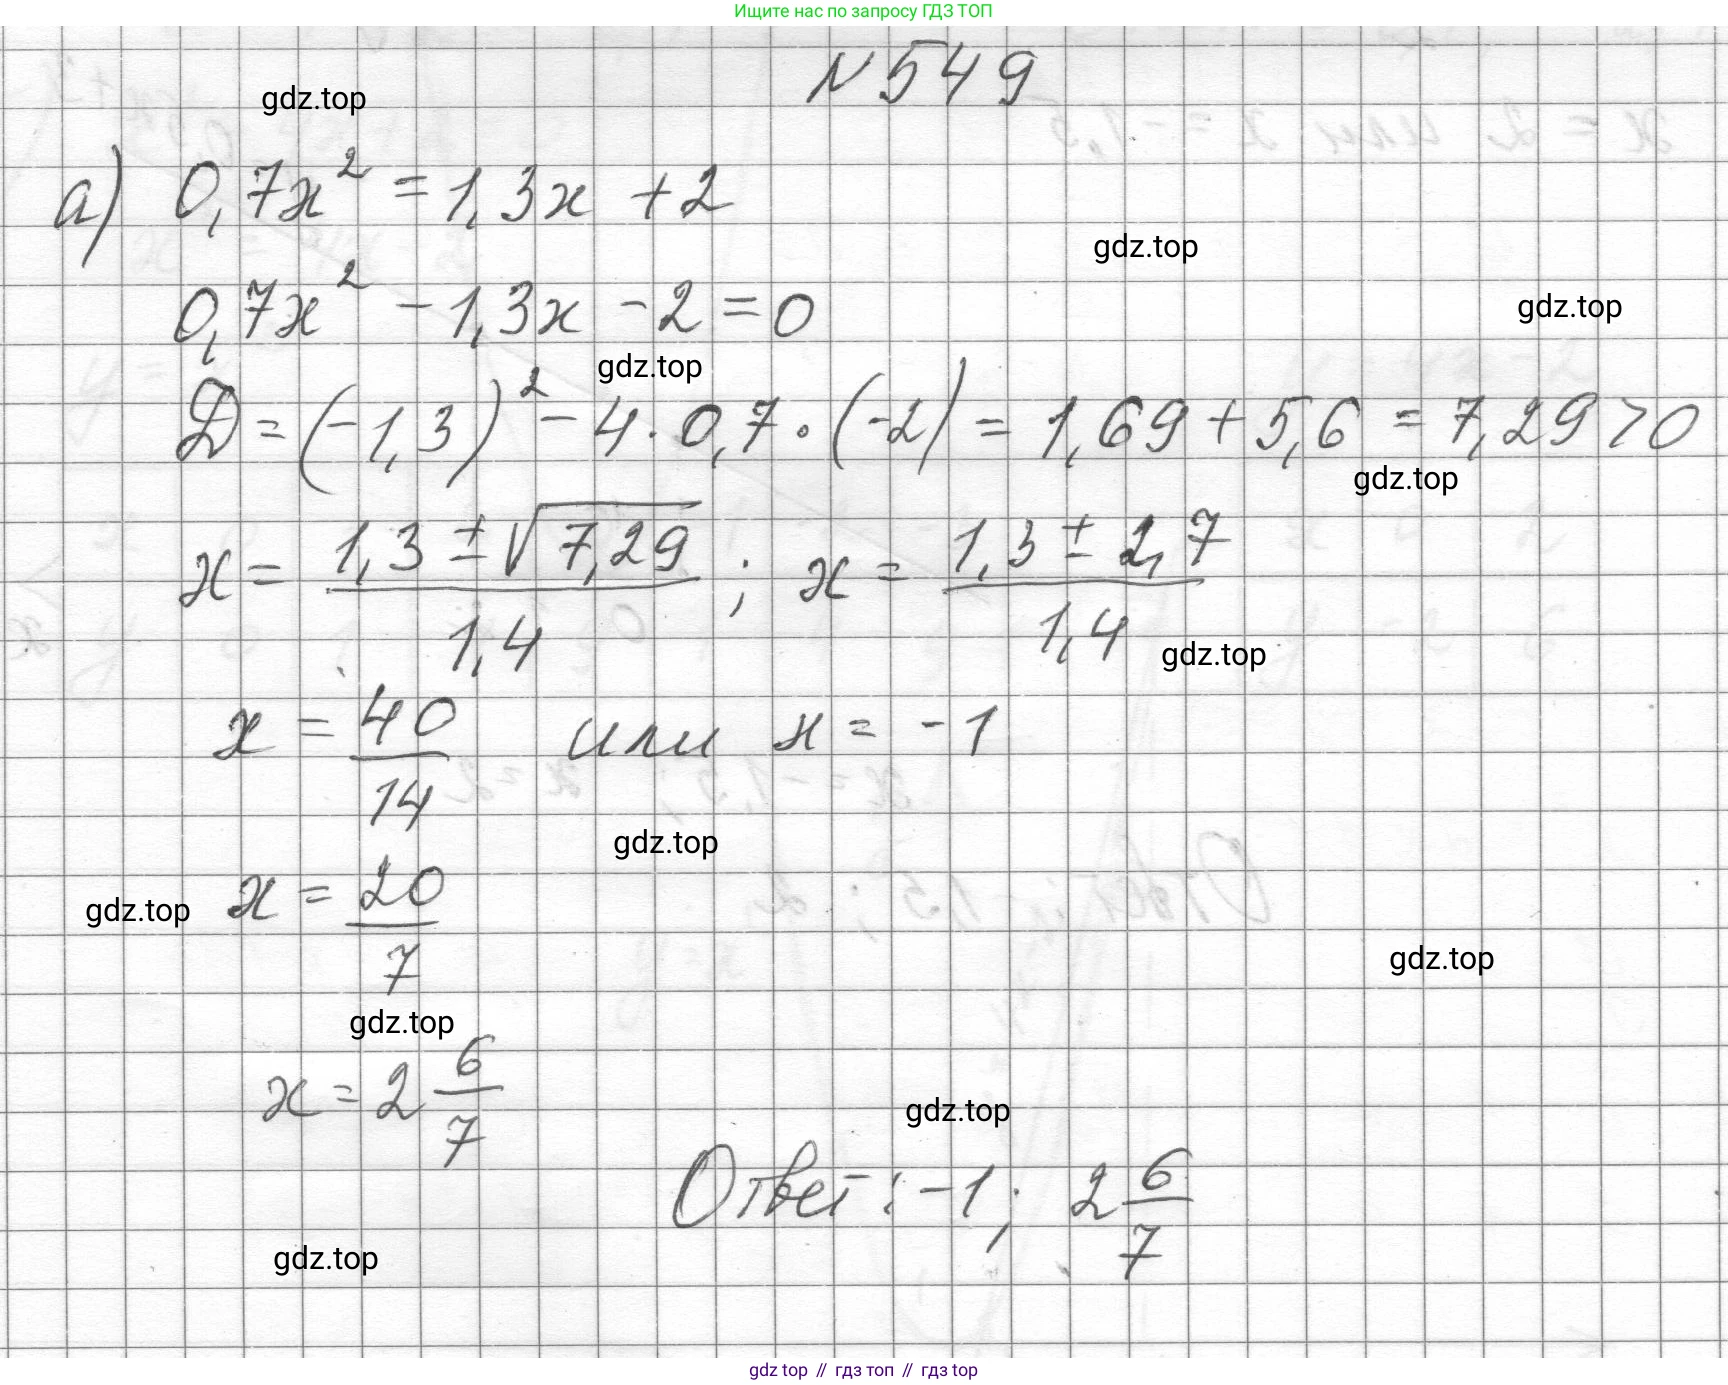 Ищите нас по запросу ГДЗ ТОП
N 549
gdz.top
а) 0,7x² = 1,3x + 2
gdz.top
0,7x² - 1,3x - 2 = 0
gdz.top
gdz.top
D = (-1,3)² - 4 · 0,7 · (-2) = 1,69 + 5,6 = 7,29 > 0
gdz.top
x = (1,3 ± √7,29)/1,4 ; x = (1,3 ± 2,7)/1,4
gdz.top
x = 40/14 или x = -1
gdz.top
x = 20/7
gdz.top
gdz.top
gdz.top
x = 2 6/7
gdz.top
Ответ: -1; 2 6/7
gdz.top
gdz top // гдз топ // гдз top